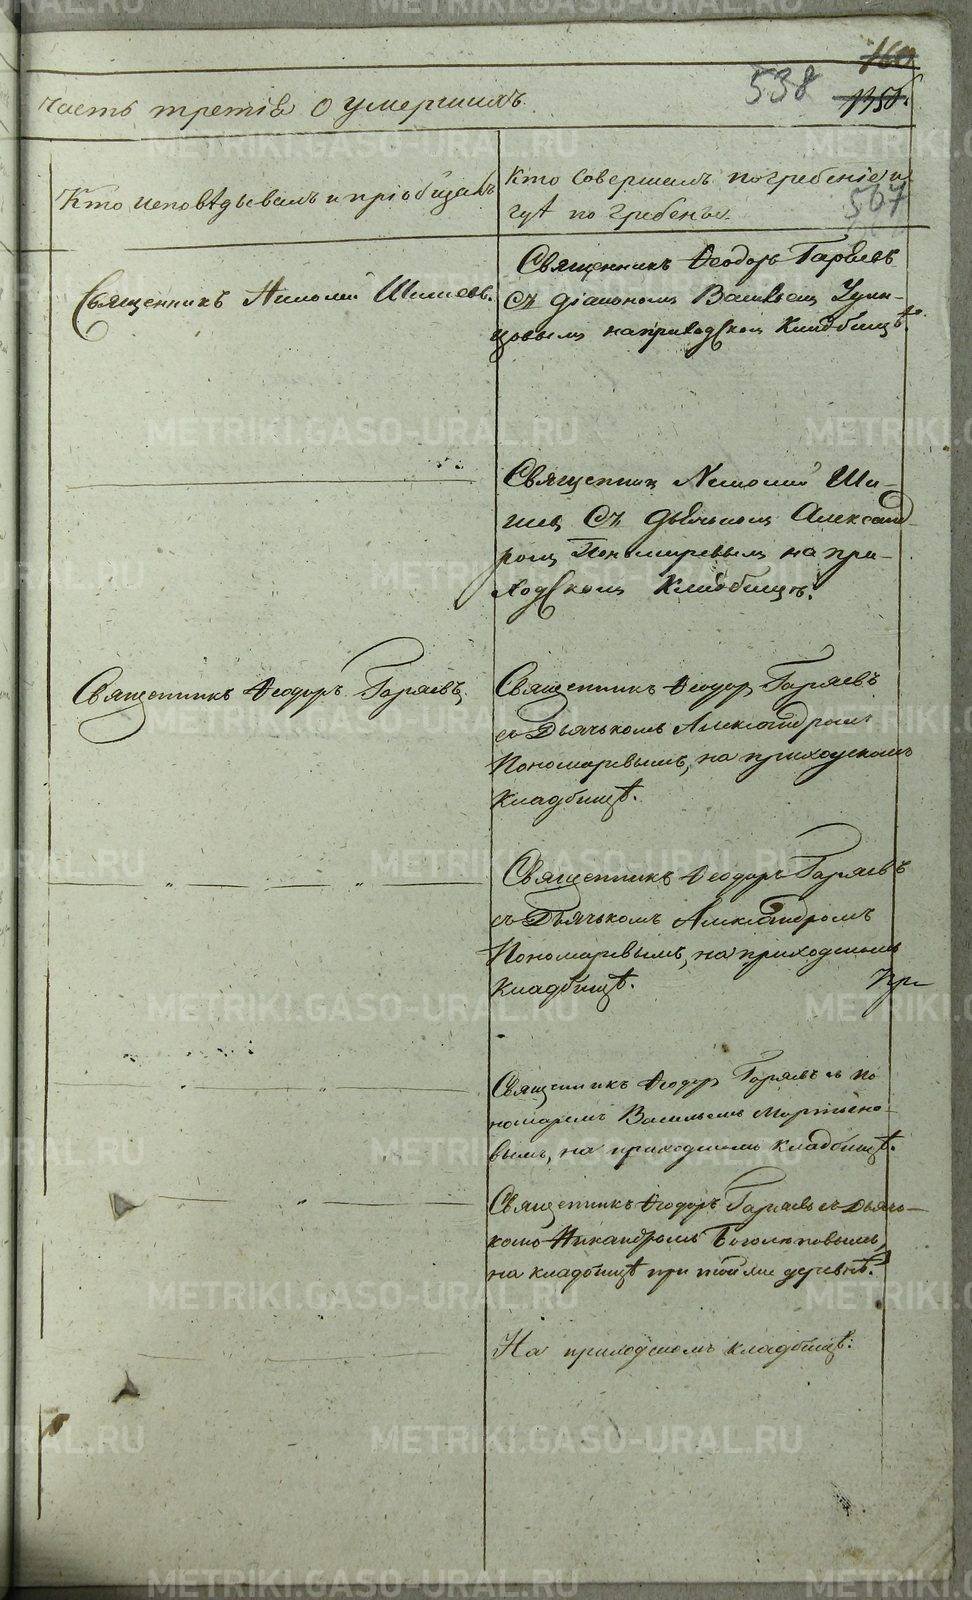 160
538
1350.
Часть третія о умершихъ.
Кто исповѣдывалъ и пріобщалъ
Кто совершалъ погребеніе и
гдѣ погребены.
507
Священникъ Шишевъ.
Священникъ Ѳеодоръ Гаряевъ
съ діакономъ Васильемъ
на приходскомъ кладбищѣ.
Священникъ Ши-
шевъ съ дьячкомъ Александ-
ромъ Пономаревымъ на при-
ходскомъ кладбищѣ.
Священникъ Ѳеодоръ Гаряевъ,
Священникъ Ѳеодоръ Гаряевъ
съ Дьячькомъ Александромъ
Пономаревымъ, на приходскомъ
кладбищѣ.
Священникъ Ѳеодоръ Гаряевъ
съ Дьячькомъ Александромъ
Пономаревымъ, на приходскомъ
кладбищѣ.
При
Священникъ Ѳеодоръ Гаряевъ съ по
номаремъ Васильемъ Мартыно-
вымъ, на приходскомъ кладбищѣ.
Священникъ Ѳеодоръ Гаряевъ съ дьяч-
комъ Никандромъ Боголюповымъ,
на кладбищѣ при той же деревнѣ.
На приходскомъ кладбищѣ.
METRIKI.GASO-URAL.RU